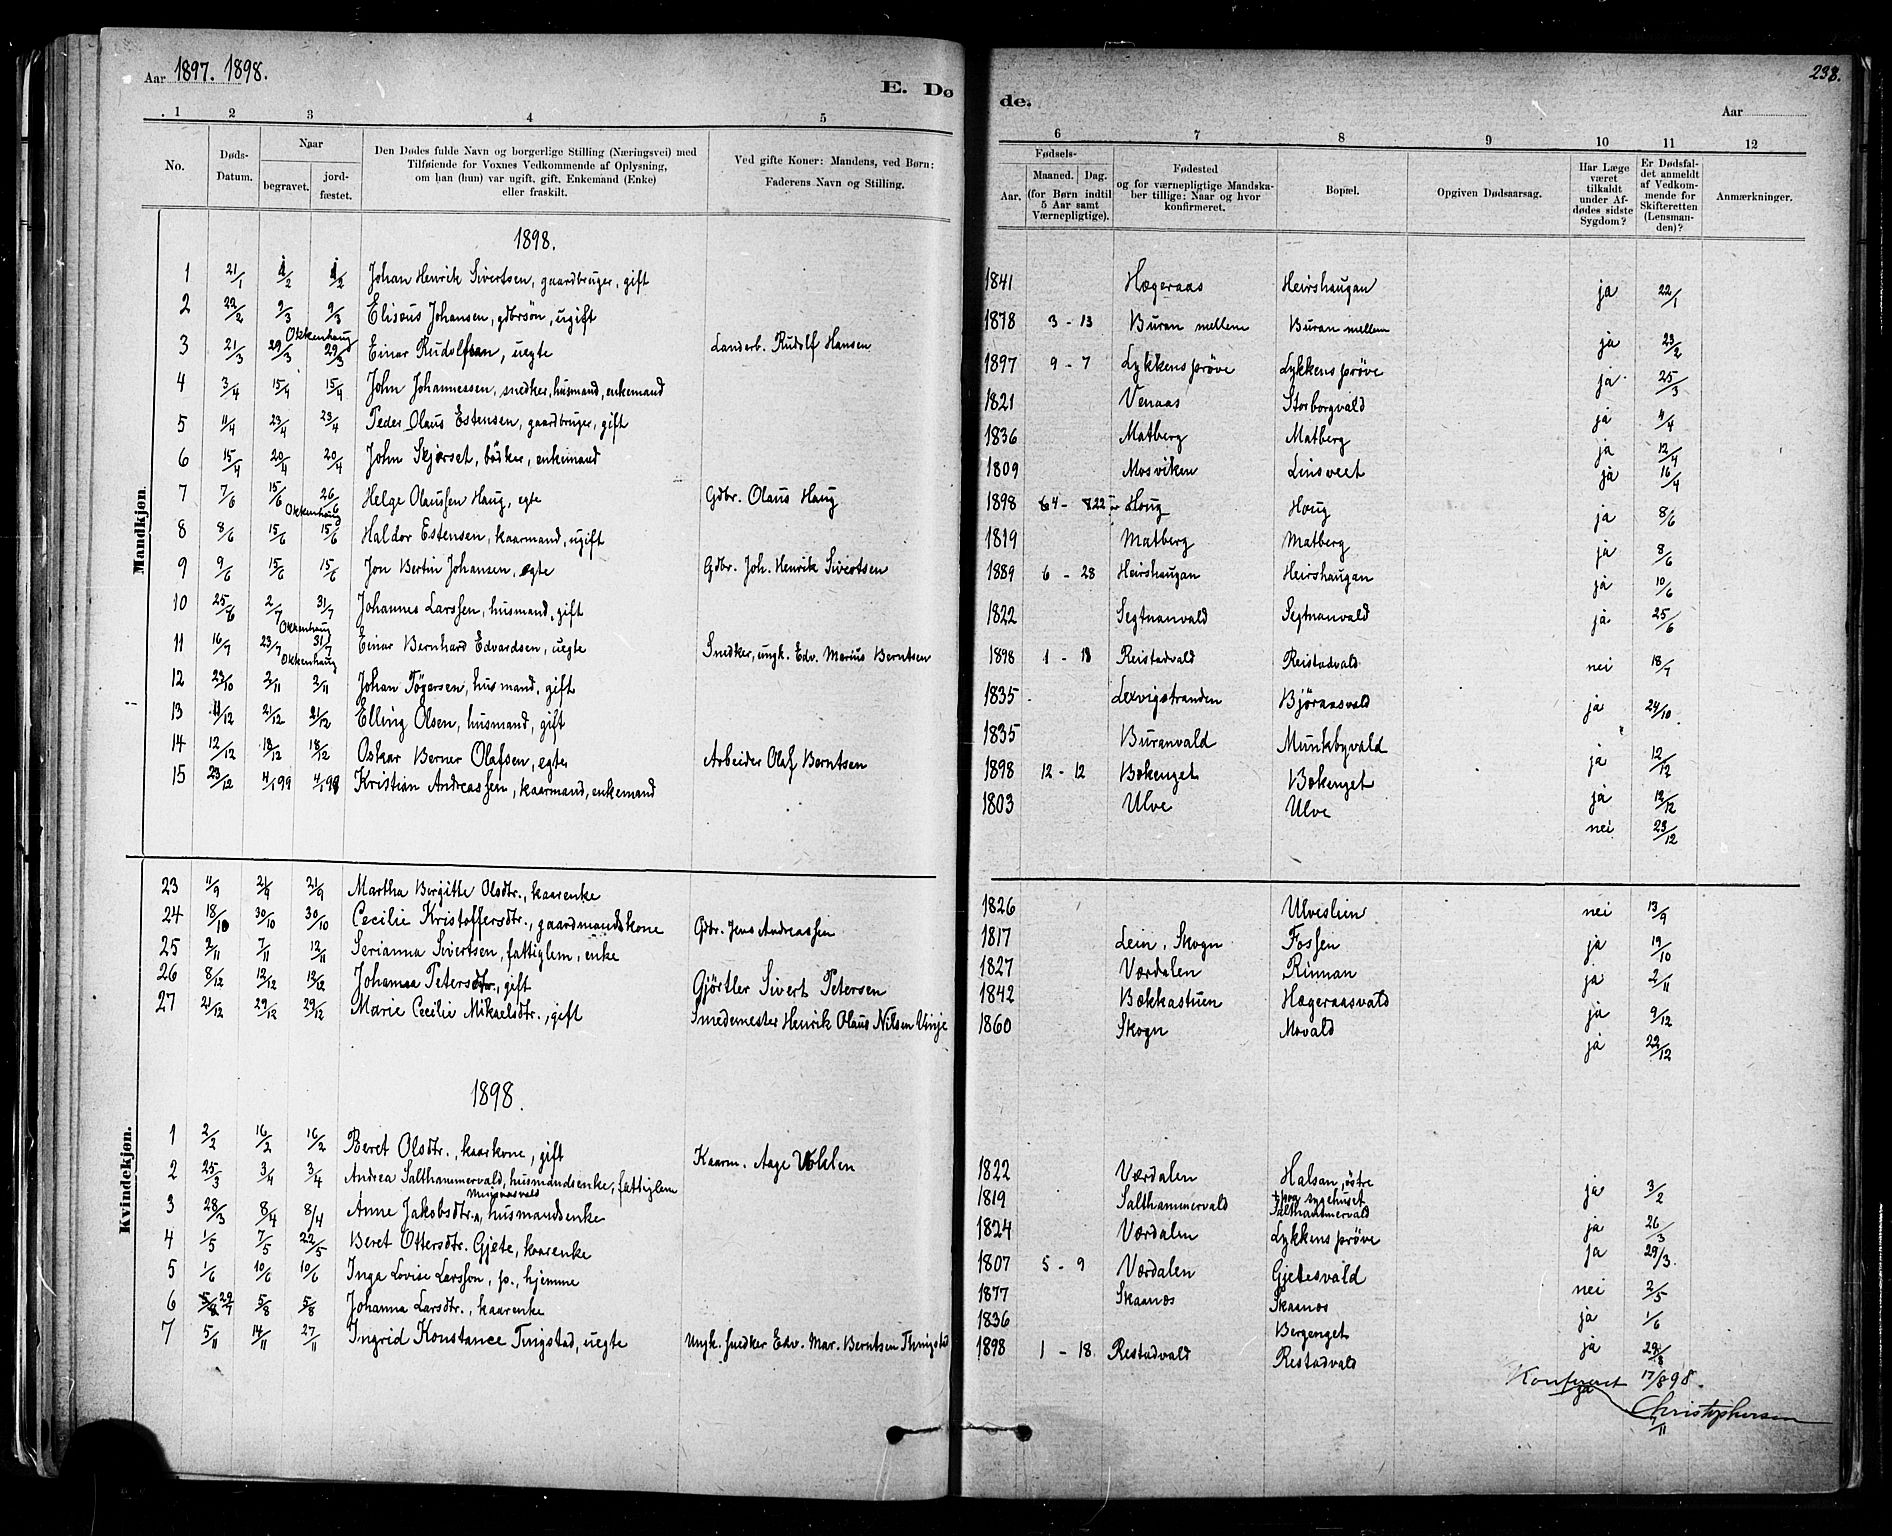 Aar 1897. 1898.
E. Dø
de.
238.
Aar
1 2 3 4 5 6 7 8 9 10 11 12
No.
Døds-Datum.
Naar
begravet.
jord-fæstet.
Den Dødes fulde Navn og borgerlige Stilling (Næringsvei) med
Tilføiende for Voxnes Vedkommende af Oplysning,
om han (hun) var ugift, gift, Enkemand (Enke)
eller fraskilt.
Ved gifte Koner: Mandens, ved Børn:
Faderens Navn og Stilling.
Fødsels-
Aar.
Maaned. Dag.
(for Børn indtil
5 Aar samt
Værnepligtige).
Fødested
og for værnepligtige Mandska-
ber tillige: Naar og hvor
konfirmeret.
Bopæl.
Opgiven Dødsaarsag.
Har Læge
været
tilkaldt
under Af-
dødes sidste
Sygdom?
Er Dødsfal-
det anmeldt
af Vedkom-
mende for
Skifteretten
(Lensman-
den)?
Anmærkninger.
Mandkjøn.
1898.
1 21/1 1/2 1/2 Johan Henrik Sivertsen, gaardbruger, gift 1841 Hægeraas Heirshaugan ja 22/1
2 22/2 9/3 9/3 Elisæus Johansen, gdbrsön, ugift 1878 3 - 13 Buran mellem Buran mellem ja 23/2
Okkenhaug
3 21/3 29/3 29/3 Einar Rudolfsen, uegte Landerb. Rudolf Hansen 1897 9 - 7 Lykkens pröve Lykkens pröve ja 25/3
4 3/4 15/4 15/4 John Johannessen, snedker, husmand, enkemand 1821 Venaas Storborgvald ja 4/4
5 11/4 23/4 23/4 Peder Olaus Estensen, gaardbruger, gift 1836 Matberg Matberg ja 12/4
6 15/4 20/4 20/4 John Skjerset, bödker, enkemand 1809 Mosviken Linsveet ja 16/4
7 7/6 15/6 26/6 Helge Olaussen Haug, egte Gdbr. Olaus Haug 1898 Houg Houg ja 8/6
Okkenhaug
8 8/6 15/6 15/6 Haldor Estensen, kaarmand, ugift 1819 Matberg Matberg ja 8/6
9 9/6 15/6 15/6 Jon Bertin Johansen, egte Gdbr. Joh. Henrik Sivertsen 1889 6 - 28 Heirshaugan Heirshaugan ja 10/6
10 25/6 2/7 31/7 Johannes Larssen, husmand, gift 1822 Segtnanvald Segtnanvald ja 25/6
Okkenhaug
11 16/7 23/7 31/7 Einar Bernhard Edvardsen, uegte Snedker, ungk. Edv. Marius Berntsen 1898 1 - 18 Reistadvald Reistadvald nei 18/7
Okkenhaug
12 23/10 2/11 2/11 Johan Tögersen, husmand, gift 1835 Lexvigstranden Björaasvald ja 24/10
13 11/12 21/12 21/12 Elling Olsen, husmand, gift 1835 Buranvald Munkbyvald ja 12/12
14 12/12 18/12 18/12 Oskar Berner Olafsen, egte Arbeider Olaf Berntsen 1898 12 - 12 Bekenget Bekenget ja 12/12
15 23/12 4/1 99 4/1 99 Kristian Andreassen, kaarmand, enkemand 1803 Ulve Ulve nei 23/12
Kvindekjøn.
23 11/9 21/9 21/9 Martha Bergitte Olsdtr., kaarenke 1826 Ulveslien nei 13/9
24 18/10 30/10 30/10 Cecilie Kristoffersdtr., gaardmandskone Gdbr. Jens Andreassen 1817 Lein, Skogn Fossen ja 19/10
25 2/11 7/11 12/11 Serianna Sivertsen, fattiglem, enke 1827 Værdalen Rinnan ja 2/11
26 8/12 12/12 12/12 Johanna Petersdtr., gift Gjörtler Sivert Petersen 1842 Bækkastuen Hægeraasvald ja 9/12
27 21/12 29/12 29/12 Marie Cecilie Mikaelsdtr., gift Smedemester Henrik Olaus Nilsen Vinje 1860 Skogn Movald ja 22/12
1898.
1 2/2 16/2 16/2 Beret Olsdtr., kaarkone, gift Kaarm. Aage 1822 Værdalen Halsan, östre ja 3/2
2 25/3 3/4 3/4 Andrea Salthammervald, husmandsenke, fattiglem 1819 Salthammervald paa sygehuset Salthammervald ja 26/3
3 28/3 8/4 8/4 Anne Jakobsdtr., husmandsenke 1824 Værdalen Lykkens pröve ja 29/3.
4 1/5 7/5 22/5 Beret Ottersdtr. Gjete, kaarenke 1807 5 - 9 Værdalen Gjetesvald nei 2/5
5 1/6 10/6 10/6 Inga Lovise Larsson, p., hjemme 1877 Skaanes Skaanes ja 1/6
6 29/7 5/8 5/8 Johanna Larsdtr., kaarenke 1836 Bergenget ja 29/8
7 5/11 14/11 27/11 Ingrid Konstance Tingstad, uegte Ungk. snedker Edv. Mar. Berntsen Thingstad 1898 1 - 18 Restadvald Restadvald ja
Konfereret 17/8 98.
Christophersen